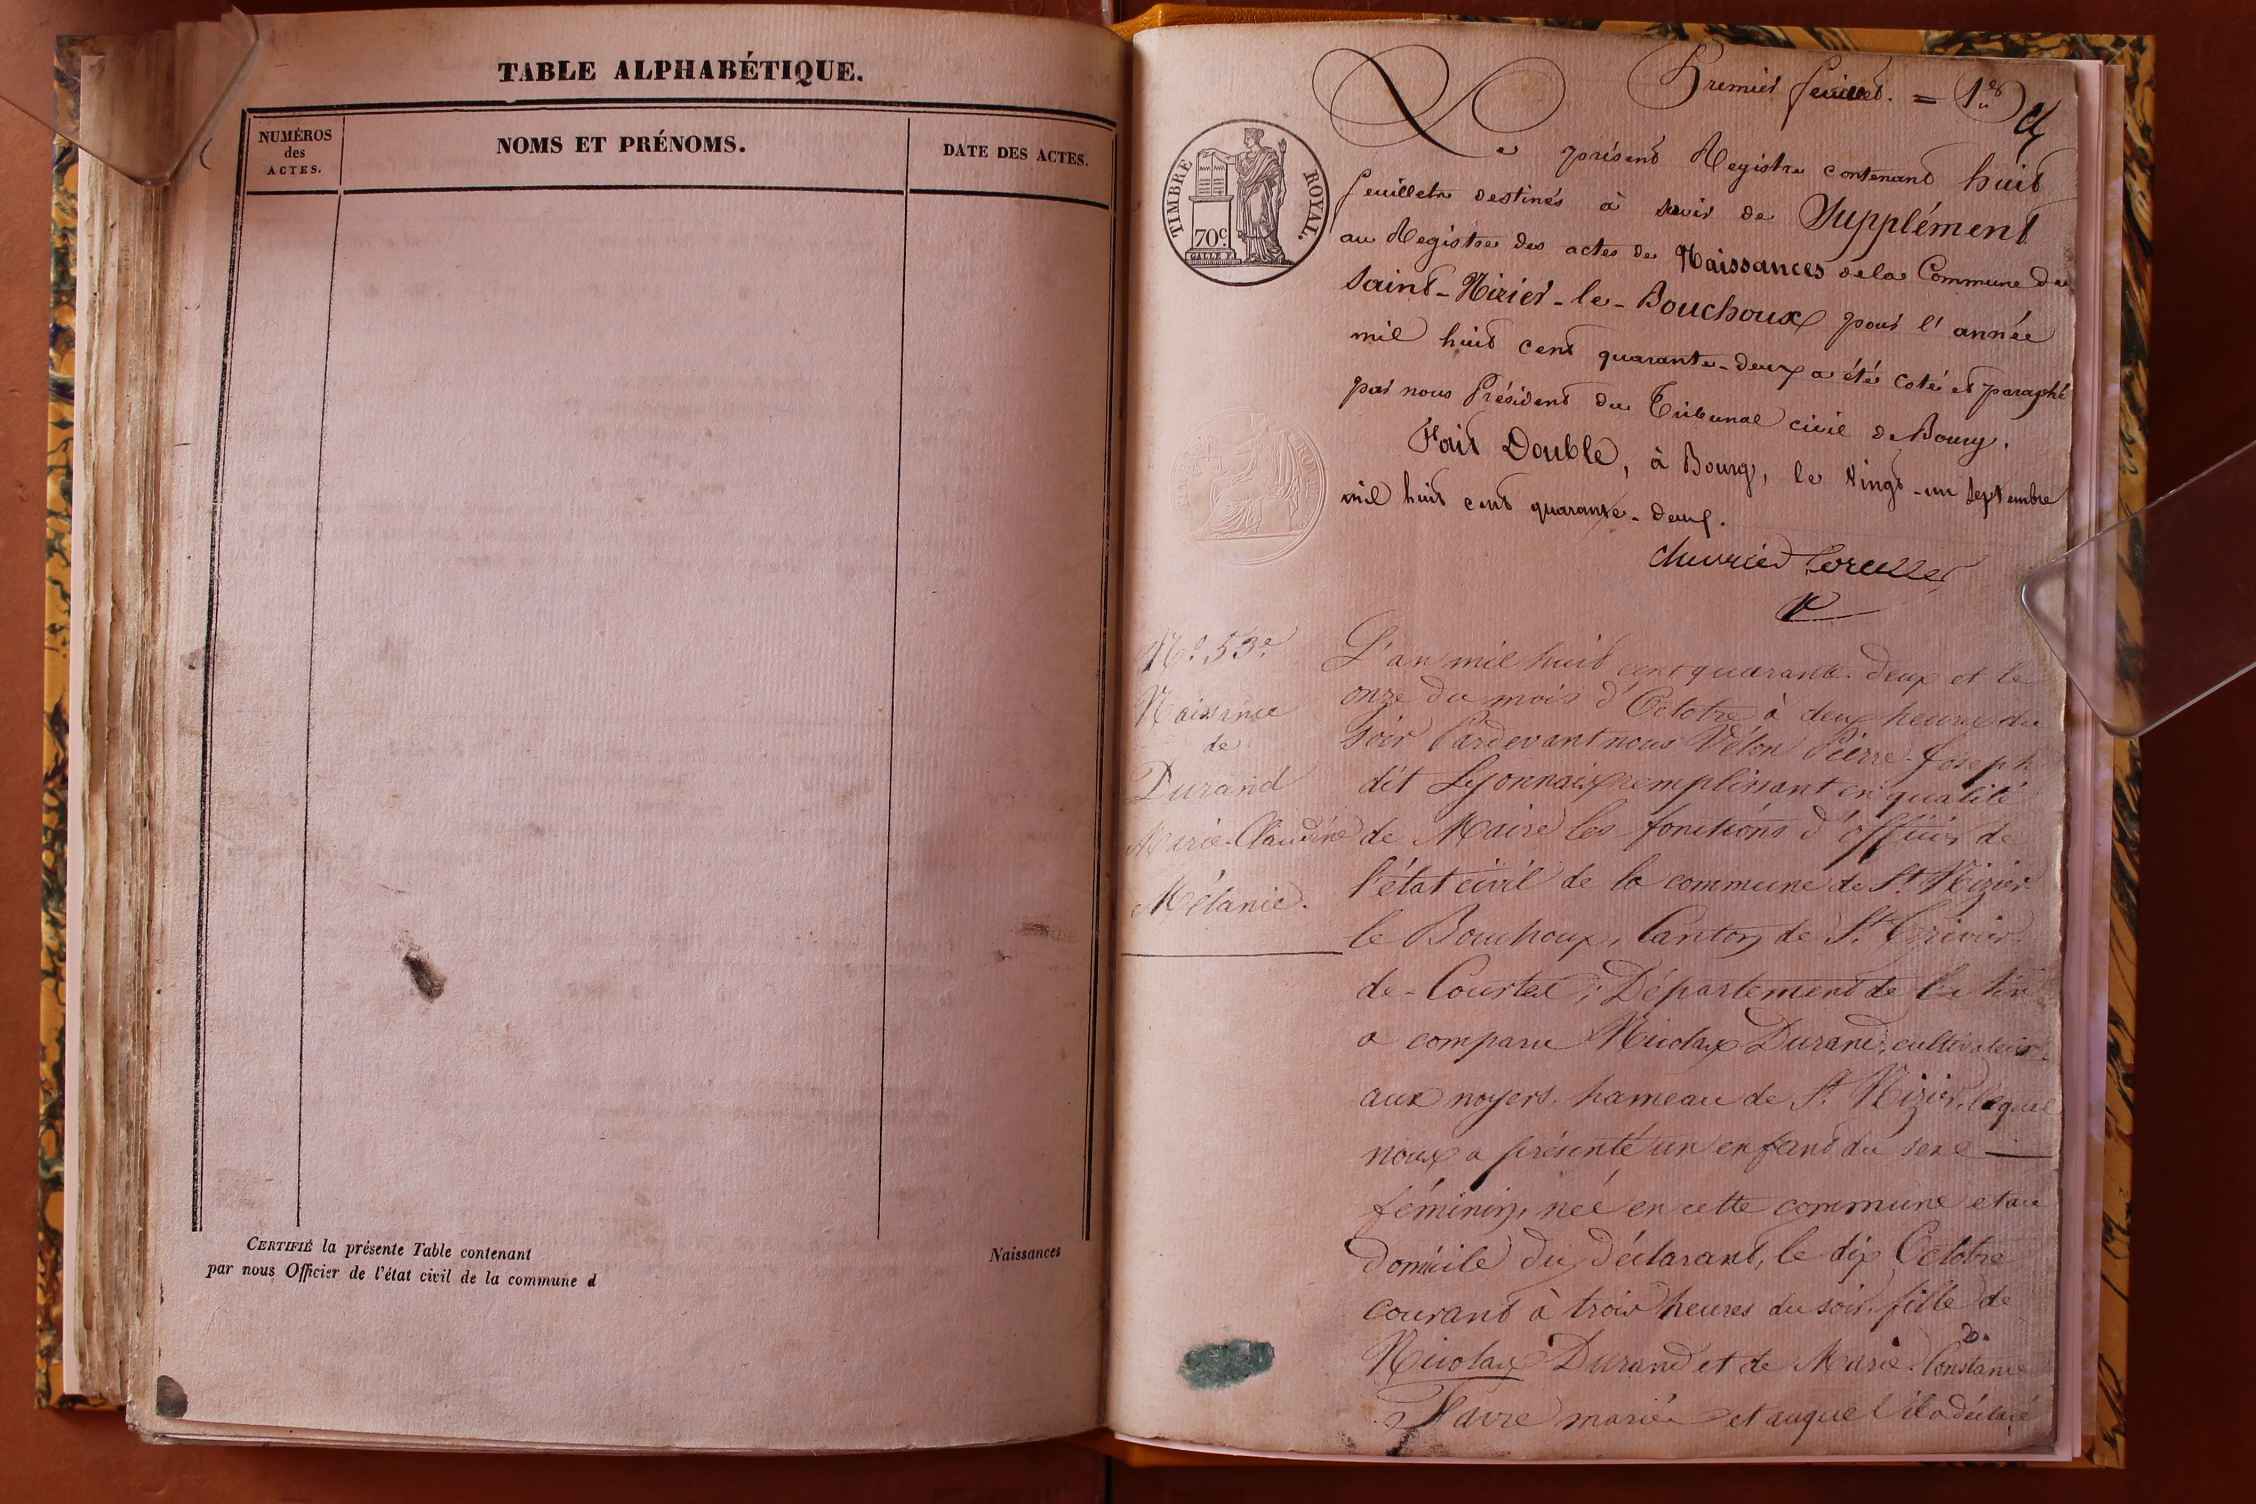 TABLE ALPHABÉTIQUE.
NUMÉROS
des
ACTES.
NOMS ET PRÉNOMS.
DATE DES ACTES.
CERTIFIÉ la présente Table contenant
Naissances
par nous Officier de l'état civil de la commune d
Premier feuillet. = 1er
TIMBRE ROYAL.
70c
Le présent Registre contenant huit
feuillets destinés à servir de Supplément
au Registre des actes de Naissances de la Commune de
Saint-Nizier-le-Bouchoux pour l'année
mil huit cent quarante-deux a été coté et paraphé
par nous Président du Tribunal civil de Bourg.
Fait Double, à Bourg, le vingt-un septembre
mil huit cent quarante-deux.
No. 53e
Naissance
de
Durand
Marie-Claudine
Mélanie.
L'an mil huit cent quarante-deux et le
onze du mois d'Octobre à deux heures du
soir Pardevant nous Vélon Pierre-Joseph
dit Lyonnais remplissant en qualité
de Maire les fonctions d'officier de
l'état civil de la commune de St. Nizier
le Bouchoux, Canton de St. Trivier
de-Courtes, Département de l'Ain
a comparu Nicolas Durand, cultivateur
aux noyers, hameau de St. Nizier, lequel
nous a présenté un enfant du sexe
féminin, née en cette commune et au
domicile du déclarant, le dix Octobre
courant à trois heures du soir, fille de
Nicolas Durand et de Marie-Constance
Favre mariés et auquel il a déclaré